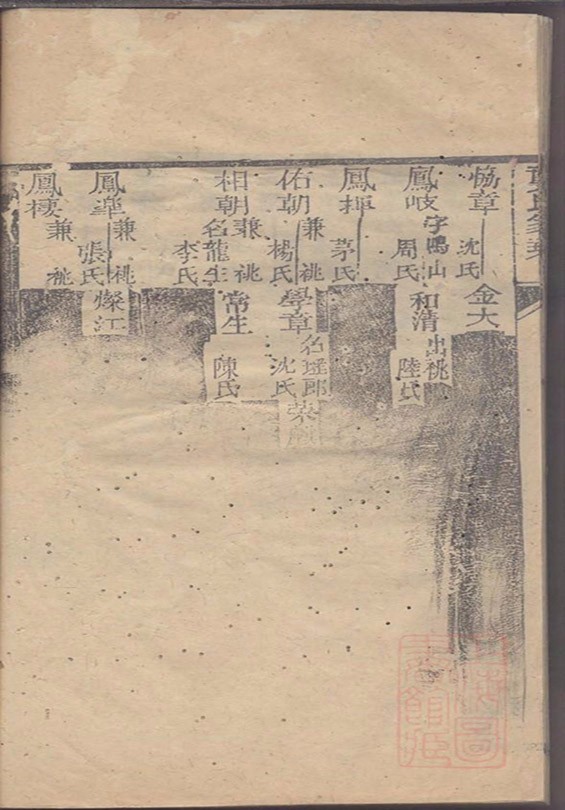 暢章
沈氏
金大
鳳岐
字鳴山
周氏
和清
出祧
陸氏
鳳揮
茅氏
佑朝
兼祧
楊氏
學章
名瑾郎
沈氏
榮
相朝
兼祧
名龍生
李氏
常生
陳氏
鳳
兼祧
張氏
燦江
鳳棲
兼祧